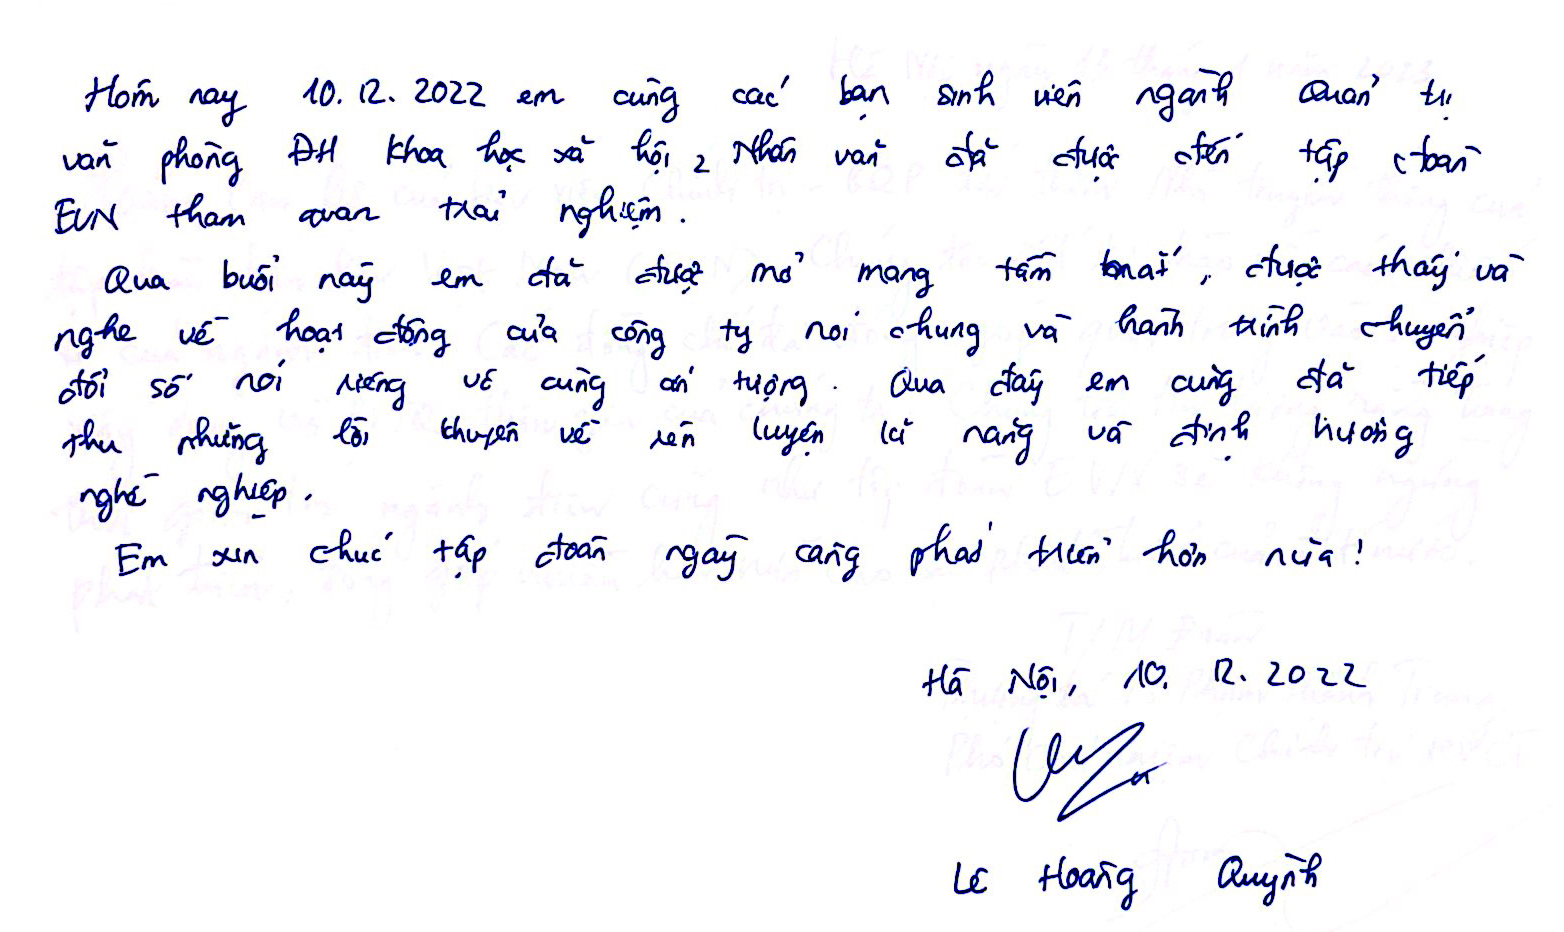 Hôm nay 10.12.2022 em cùng các bạn sinh viên ngành Quản trị
văn phòng ĐH Khoa học xã hội & Nhân văn đã được đến tập đoàn
EVN tham quan trải nghiệm.
Qua buổi này em đã được mở mang tầm mắt, được thấy và
nghe về hoạt động của công ty nói chung và hành trình chuyển
đổi số nói riêng vô cùng ấn tượng. Qua đây em cũng đã tiếp
thu những lời khuyên về rèn luyện kĩ năng và định hướng
nghề nghiệp.
Em xin chúc tập đoàn ngày càng phát triển hơn nữa!
Hà Nội, 10.12.2022
Lê Hoàng Quỳnh